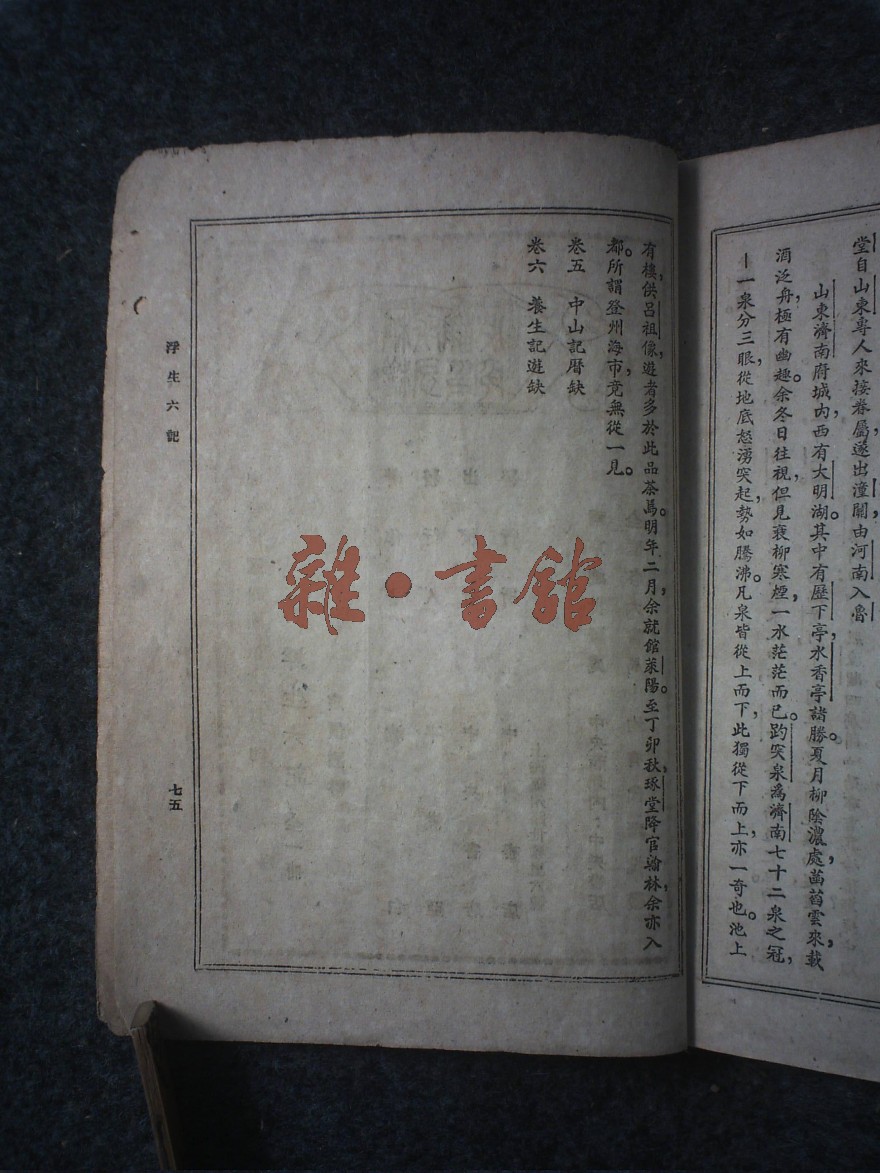 堂自山東專人來接眷屬，遂出潼關，由河南入魯
山東濟南府城內，西有大明湖。其中有歷下亭，水香亭諸勝。夏月柳陰濃處，菡萏雲來，載
酒泛舟，極有幽趣。余冬日往視，但見衰柳寒煙，一水茫茫而已。趵突泉爲濟南七十二泉之冠，
一泉分三眼，從地底怒湧突起，勢如騰沸。凡泉皆從上而下，此獨從下而上，亦一奇也。池上
有樓，供呂祖像，遊者多於此品茶焉。明年二月，余就館萊陽。至丁卯秋，琢堂降官翰林，余亦入
都。所謂登州海市，竟無從一見。
卷五　中山記曆缺
卷六　養生記遊缺
浮生六記
七五
雜·書館